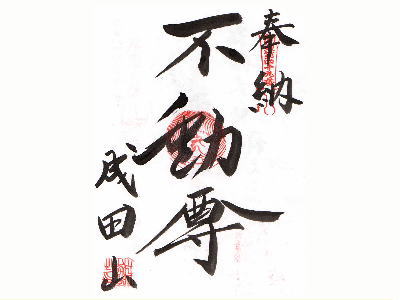 奉納
不動尊
成田山